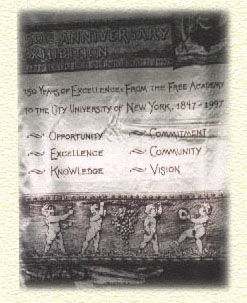 ANNIVERSARY
EXHIBITION
150 YEARS OF EXCELLENCE: FROM THE FREE ACADEMY
TO THE CITY UNIVERSITY OF NEW YORK, 1847-1997
OPPORTUNITY COMMITMENT
EXCELLENCE COMMUNITY
KNOWLEDGE VISION